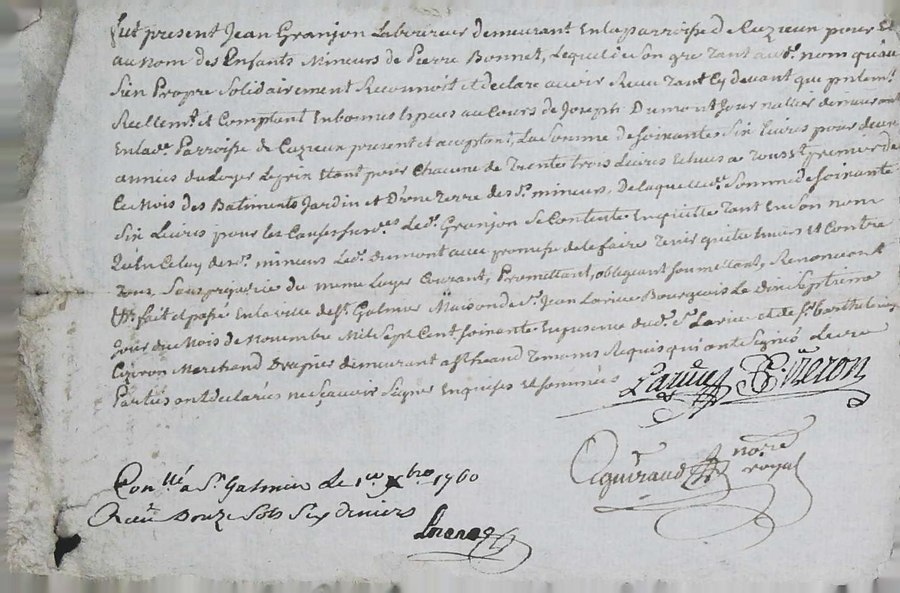 fut present Jean Granjon Laboureur demeurant En la parroisse de Cuzieu pour Et
au nom des Enfants Mineurs de Pierre Bonnet, Lequel de Son gré tant aud. nom quau
Sien Propre Solidairement Reconnoit et declare avoir Reçu tant Cy devant que pntemt
Reellemt. et Comptant En bonnes Espèces au Cours de Joseph Dumont Journallier demeurant
En lade. Parroisse de Cuzieu present et acceptant, La Somme de Soixante Six Livres pour deux
années du Loyer Le prix Etant pour Chacune de trente trois Livres Echues a tous St. premier de
Ce Mois des Batiments Jardin et D'une terre des d. mineurs, De laquelle de. Somme de Soixante
Six Livres pour les Causes Susd.es Led. Granjon Se Contente Enquitte tant En Son nom
Qu'en Celuy desd. mineurs Led. Dumont avec promesse de le faire tenir quitte Envers Et Contre
tous, Sans préjudice du meme Loyer Courant, Promettant, obligeant soumettant, Renonceant
fait et passé En la ville de St. Galmier Maison de S. Jean Larive Bourgeois Le Dix Septieme
Jour du Mois de Novembre Mil Sept Cent Soixante En pnsence dud. Sr. Larive et de Sr. Barthelemy
Marchand Drapier demeurant a temoins Requis qui ont Signés, Les
Parties ont declarées ne Sçavoir Signer Enquises et Sommées
Larive
nore.
royal
Con.llé a St. Galmier Le 1er Xbre 1760
Reçu Douze Sols Six Deniers